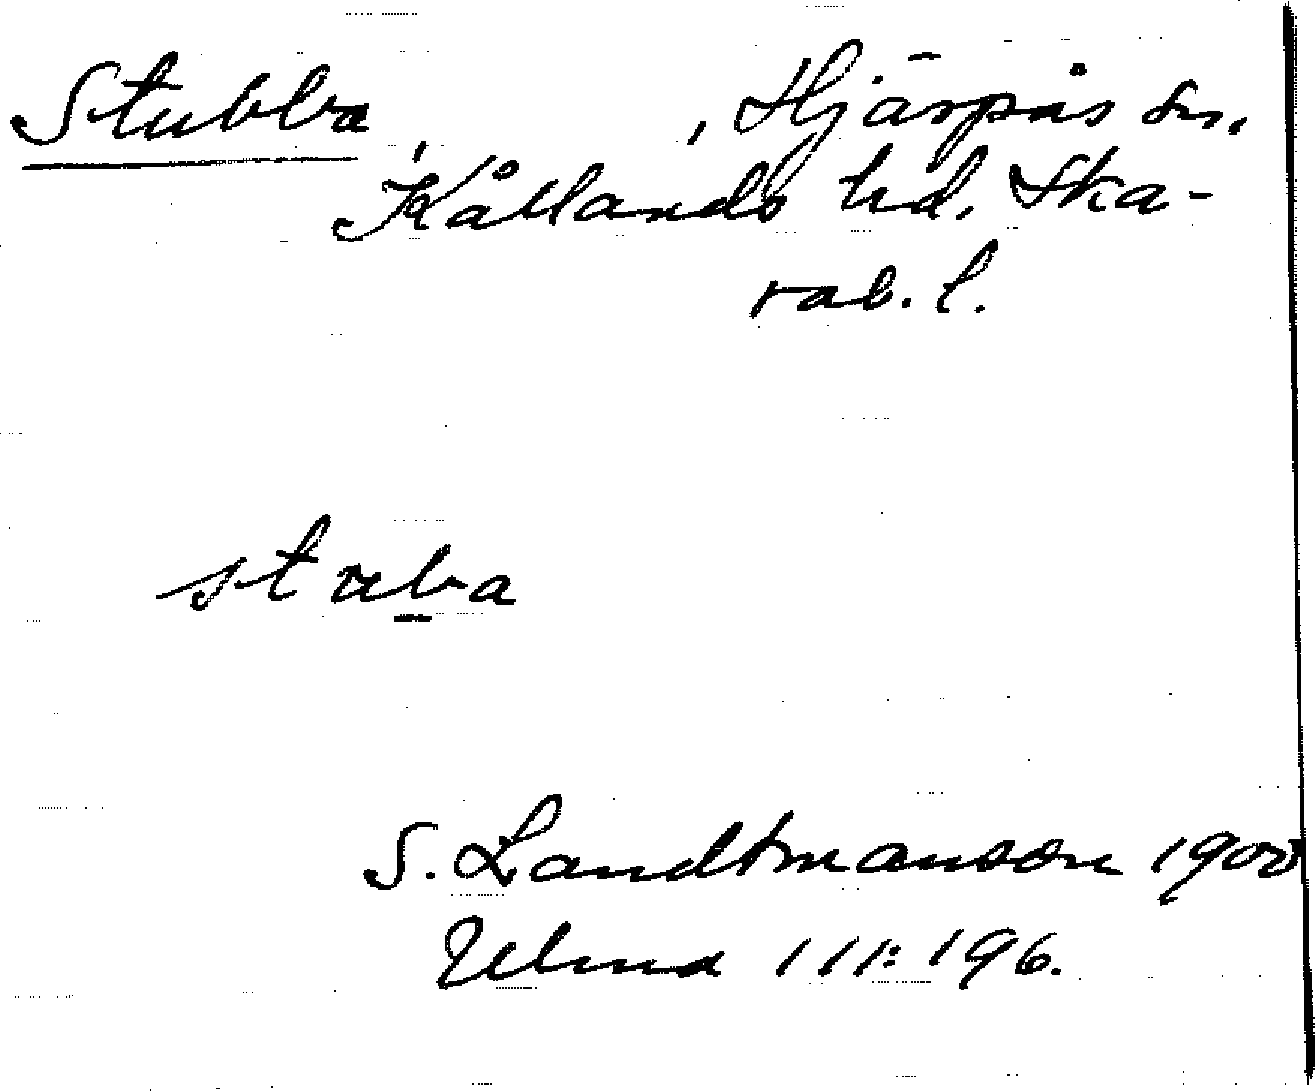 Stubba , Hjärpås sn,
Kållands hd, Ska-
rab. l.
stuba
S. Landtmanson 1900
Ulma 111:196.